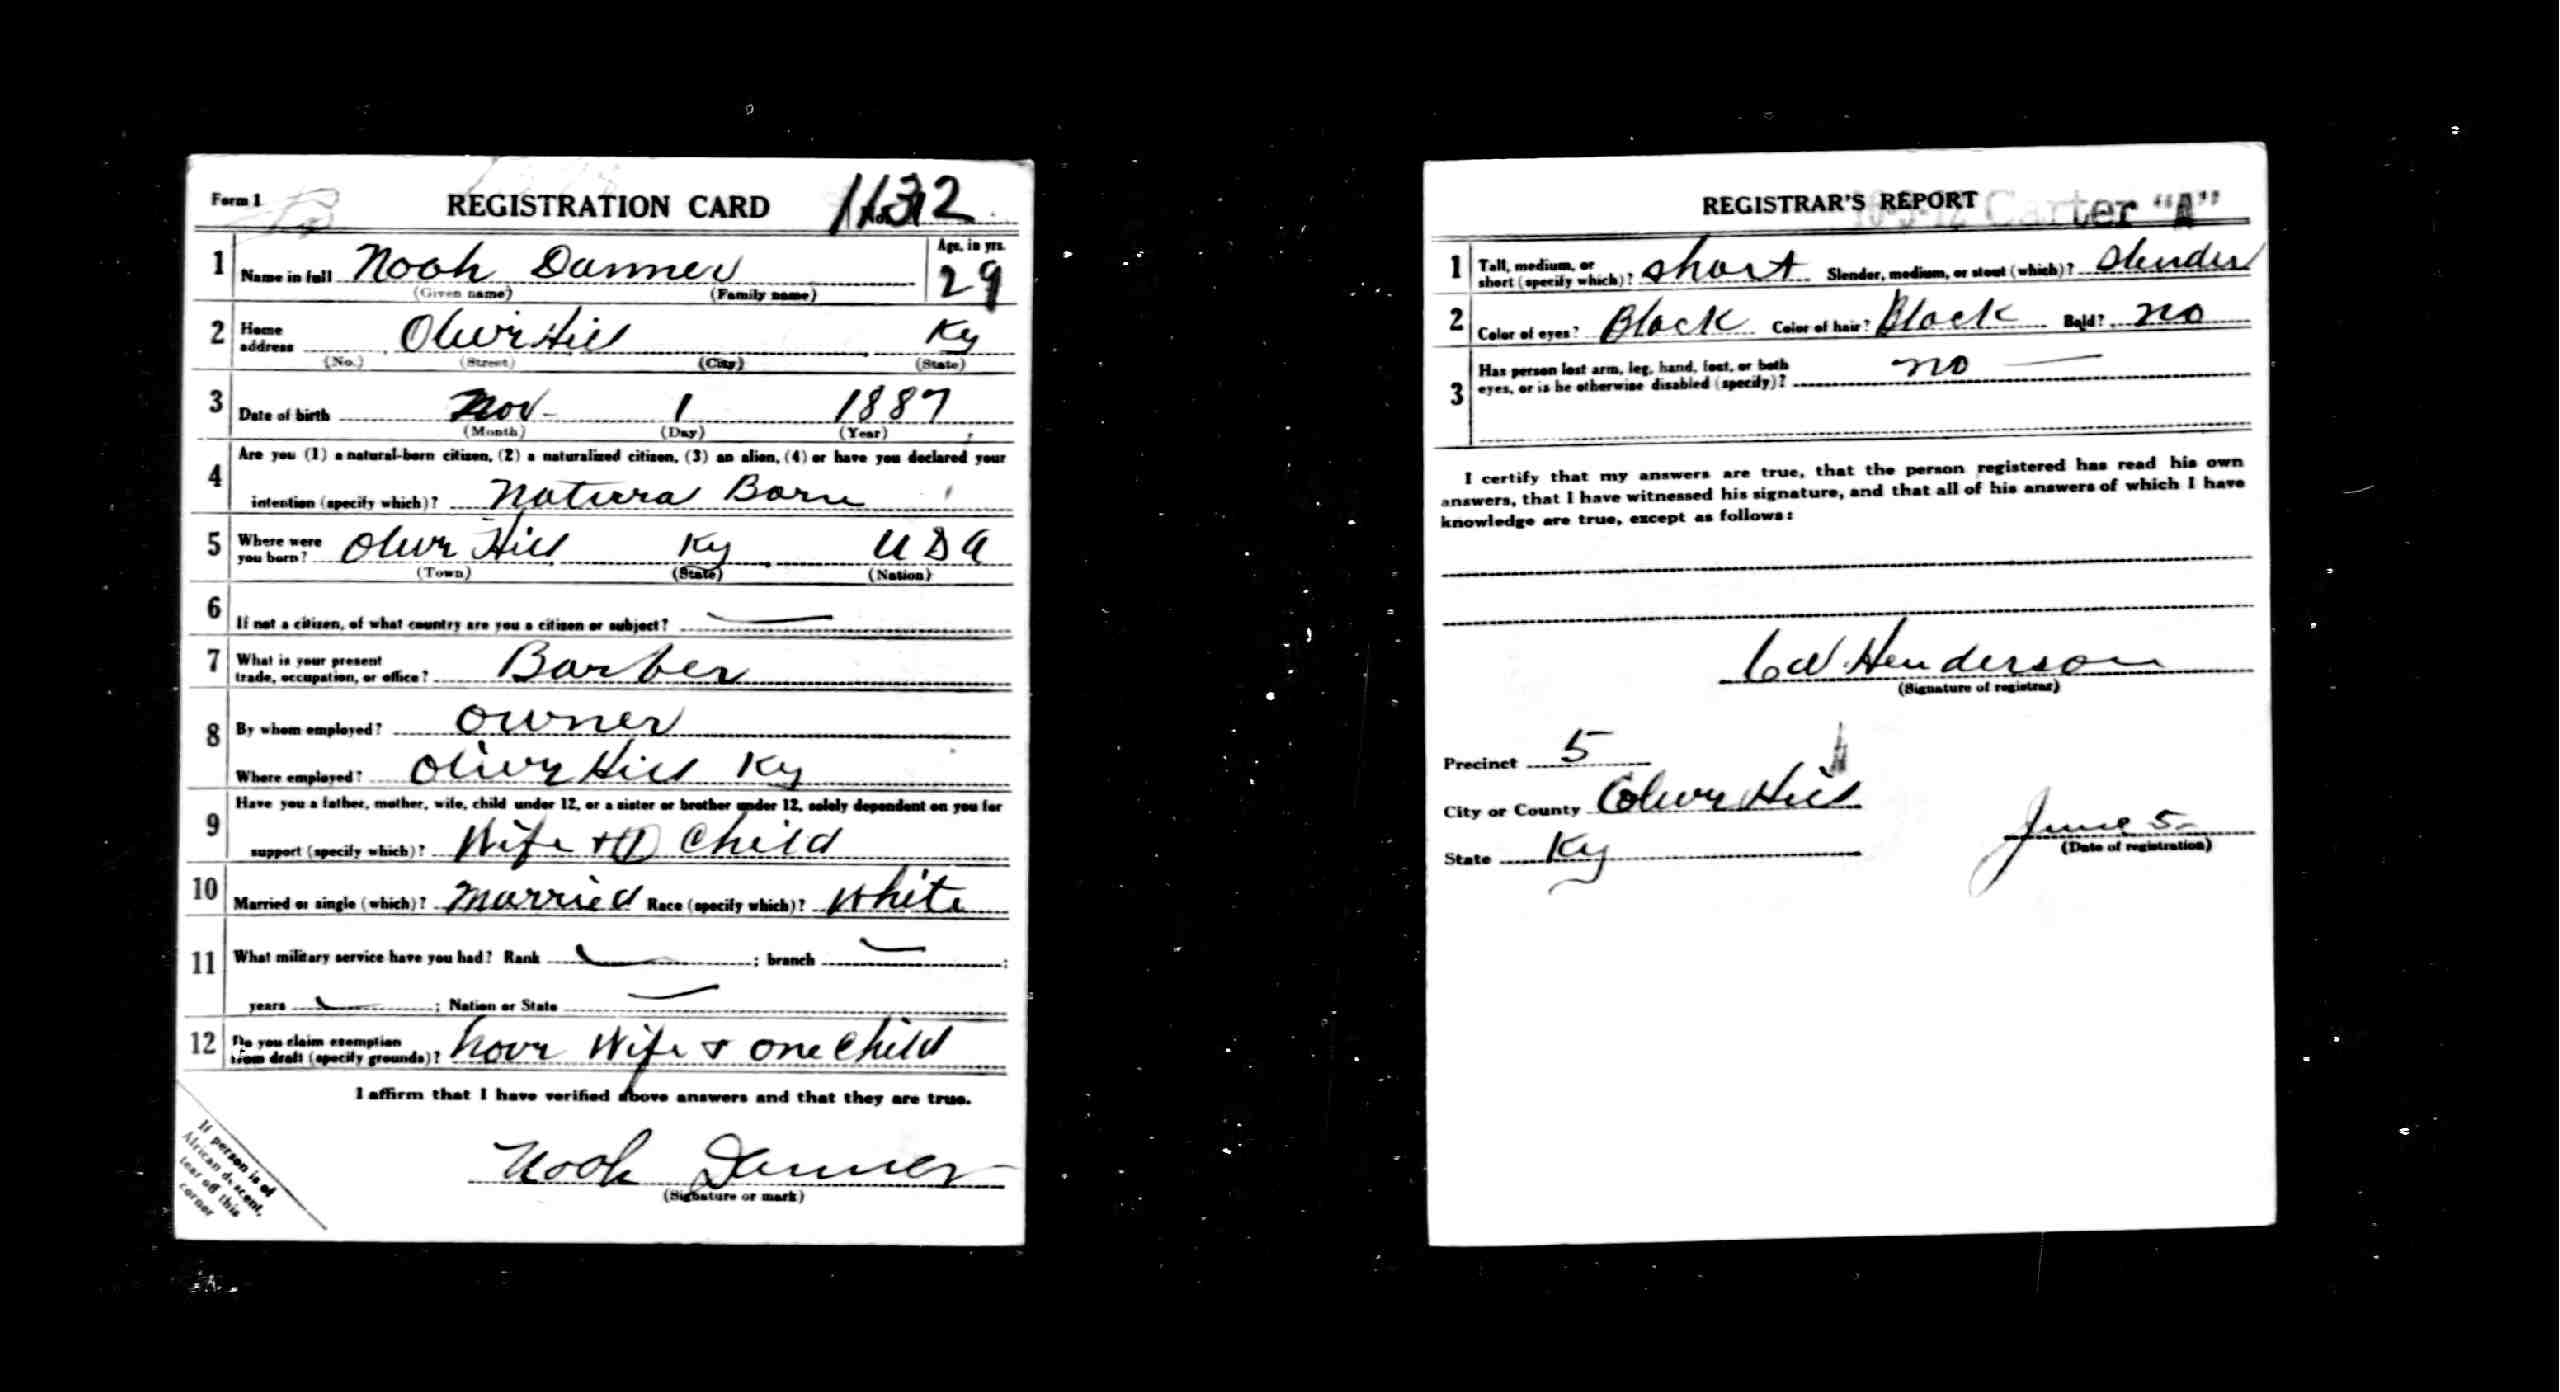 Form 1 REGISTRATION CARD No. 1132
1 Name in full Noah Danner Age, in yrs. 29
(Given name) (Family name)
2 Home address Olivr Hill Ky
(No.) (Street) (City) (State)
3 Date of birth Nov- 1 1887
(Month) (Day) (Year)
Are you (1) a natural-born citizen, (2) a naturalized citizen, (3) an alien, (4) or have you declared your
4 intention (specify which)? Natura Born
5 Where were you born? Olivr Hill Ky USA
(Town) (State) (Nation)
6 If not a citizen, of what country are you a citizen or subject? —
7 What is your present trade, occupation, or office? Barber
8 By whom employed? Owner
Where employed? Olivr Hill Ky
Have you a father, mother, wife, child under 12, or a sister or brother under 12, solely dependent on you for
9 support (specify which)? Wife + (1) Child
10 Married or single (which)? Married Race (specify which)? White
11 What military service have you had? Rank — ; branch — ;
years — ; Nation or State —
12 Do you claim exemption from draft (specify grounds)? hovr Wife & one Child
I affirm that I have verified above answers and that they are true.
Noah Danner
(Signature or mark)
If person is of
African descent,
tear off this
corner
REGISTRAR'S REPORT Carter "A"
1 Tall, medium, or short (specify which)? Short Slender, medium, or stout (which)? Slender
2 Color of eyes? Black Color of hair? Black Bald? No
3 Has person lost arm, leg, hand, foot, or both
eyes, or is he otherwise disabled (specify)? No —
I certify that my answers are true, that the person registered has read his own
answers, that I have witnessed his signature, and that all of his answers of which I have
knowledge are true, except as follows:
Henderson
(Signature of registrar)
Precinct 5
City or County Olivr Hill
State Ky
June 5-
(Date of registration)